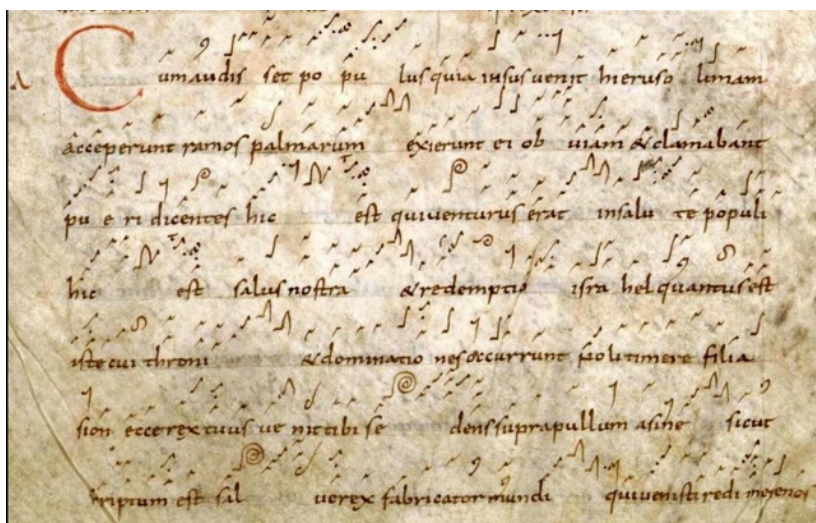 Cum audis set po pu lus quia iħsus uenit hieruso limam
acceperunt ramos palmarum exierunt ei ob uiam & clamabant
pu e ri dicentes hic est qui uenturus erat insalu te populi
hic est salus nostra & redemptio isra hel quantus est
iste cui throni & dominatio nes occurrunt noli timere filia
sion ecce rex tuus ue nit tibi se dens supra pullum asine sicut
scriptum est sal ue rex fabricator mundi qui uenisti redi mere nos